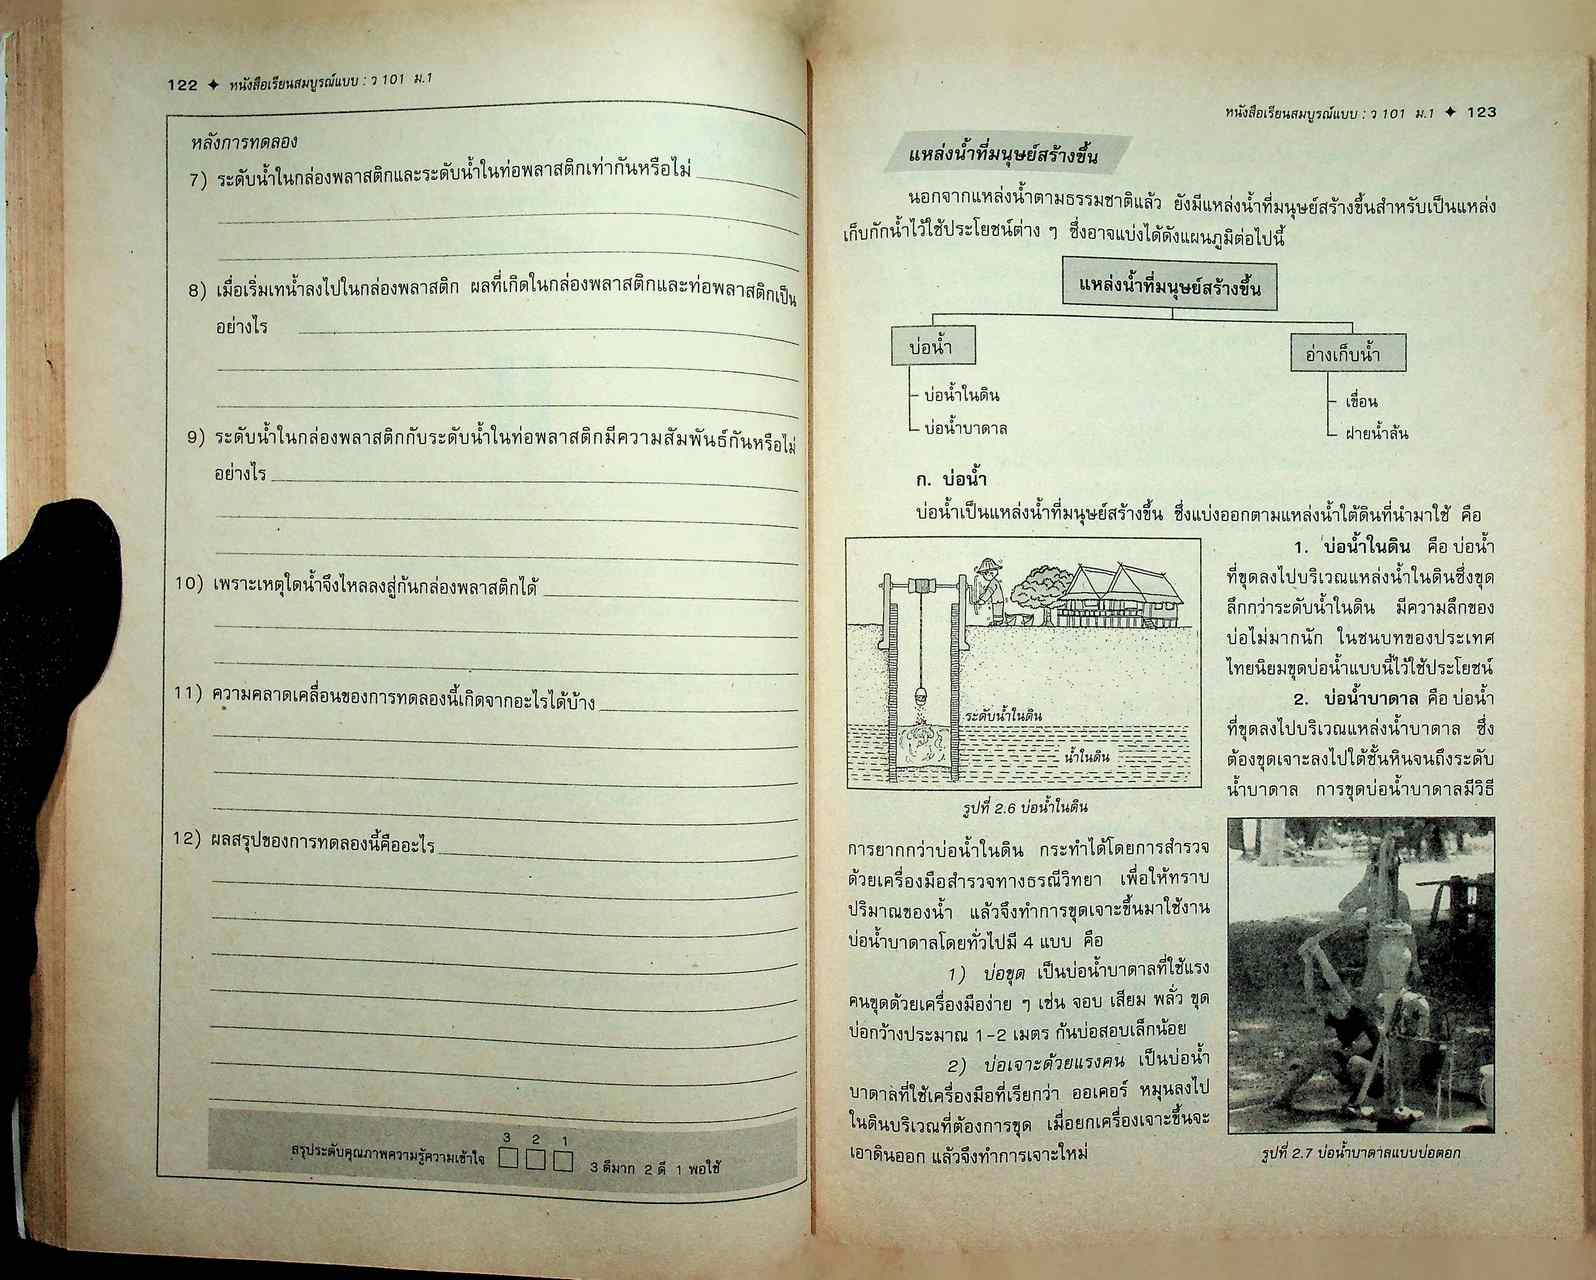 122 ✦ หนังสือเรียนสมบูรณ์แบบ : ว 101 ม.1
หลังการทดลอง
7) ระดับน้ำในกล่องพลาสติกและระดับน้ำในท่อพลาสติกเท่ากันหรือไม่
8) เมื่อเริ่มเทน้ำลงไปในกล่องพลาสติก ผลที่เกิดในกล่องพลาสติกและท่อพลาสติกเป็น
อย่างไร
9) ระดับน้ำในกล่องพลาสติกกับระดับน้ำในท่อพลาสติกมีความสัมพันธ์กันหรือไม่
อย่างไร
10) เพราะเหตุใดน้ำจึงไหลลงสู่ก้นกล่องพลาสติกได้
11) ความคลาดเคลื่อนของการทดลองนี้เกิดจากอะไรได้บ้าง
12) ผลสรุปของการทดลองนี้คืออะไร
3 2 1
สรุประดับคุณภาพความรู้ความเข้าใจ □ □ □ 3 ดีมาก 2 ดี 1 พอใช้
หนังสือเรียนสมบูรณ์แบบ : ว 101 ม.1 ✦ 123
แหล่งน้ำที่มนุษย์สร้างขึ้น
นอกจากแหล่งน้ำตามธรรมชาติแล้ว ยังมีแหล่งน้ำที่มนุษย์สร้างขึ้นสำหรับเป็นแหล่ง
เก็บกักน้ำไว้ใช้ประโยชน์ต่าง ๆ ซึ่งอาจแบ่งได้ดังแผนภูมิต่อไปนี้
แหล่งน้ำที่มนุษย์สร้างขึ้น
บ่อน้ำ
บ่อน้ำในดิน
บ่อน้ำบาดาล
อ่างเก็บน้ำ
เขื่อน
ฝายน้ำล้น
ก. บ่อน้ำ
บ่อน้ำเป็นแหล่งน้ำที่มนุษย์สร้างขึ้น ซึ่งแบ่งออกตามแหล่งน้ำใต้ดินที่นำมาใช้ คือ
1. บ่อน้ำในดิน คือ บ่อน้ำ
ที่ขุดลงไปบริเวณแหล่งน้ำในดินซึ่งขุด
ลึกกว่าระดับน้ำในดิน มีความลึกของ
บ่อไม่มากนัก ในชนบทของประเทศ
ไทยนิยมขุดบ่อน้ำแบบนี้ไว้ใช้ประโยชน์
2. บ่อน้ำบาดาล คือ บ่อน้ำ
ที่ขุดลงไปบริเวณแหล่งน้ำบาดาล ซึ่ง
ต้องขุดเจาะลงไปใต้ชั้นหินจนถึงระดับ
น้ำบาดาล การขุดบ่อน้ำบาดาลมีวิธี
ระดับน้ำในดิน
น้ำในดิน
รูปที่ 2.6 บ่อน้ำในดิน
การยากกว่าบ่อน้ำในดิน กระทำได้โดยการสำรวจ
ด้วยเครื่องมือสำรวจทางธรณีวิทยา เพื่อให้ทราบ
ปริมาณของน้ำ แล้วจึงทำการขุดเจาะขึ้นมาใช้งาน
บ่อน้ำบาดาลโดยทั่วไปมี 4 แบบ คือ
1) บ่อขุด เป็นบ่อน้ำบาดาลที่ใช้แรง
คนขุดด้วยเครื่องมือง่าย ๆ เช่น จอบ เสียม พลั่ว ขุด
บ่อกว้างประมาณ 1-2 เมตร ก้นบ่อสอบเล็กน้อย
2) บ่อเจาะด้วยแรงคน เป็นบ่อน้ำ
บาดาลที่ใช้เครื่องมือที่เรียกว่า ออเคอร์ หมุนลงไป
ในดินบริเวณที่ต้องการขุด เมื่อยกเครื่องเจาะขึ้นจะ
เอาดินออก แล้วจึงทำการเจาะใหม่
รูปที่ 2.7 บ่อน้ำบาดาลแบบบ่อตอก